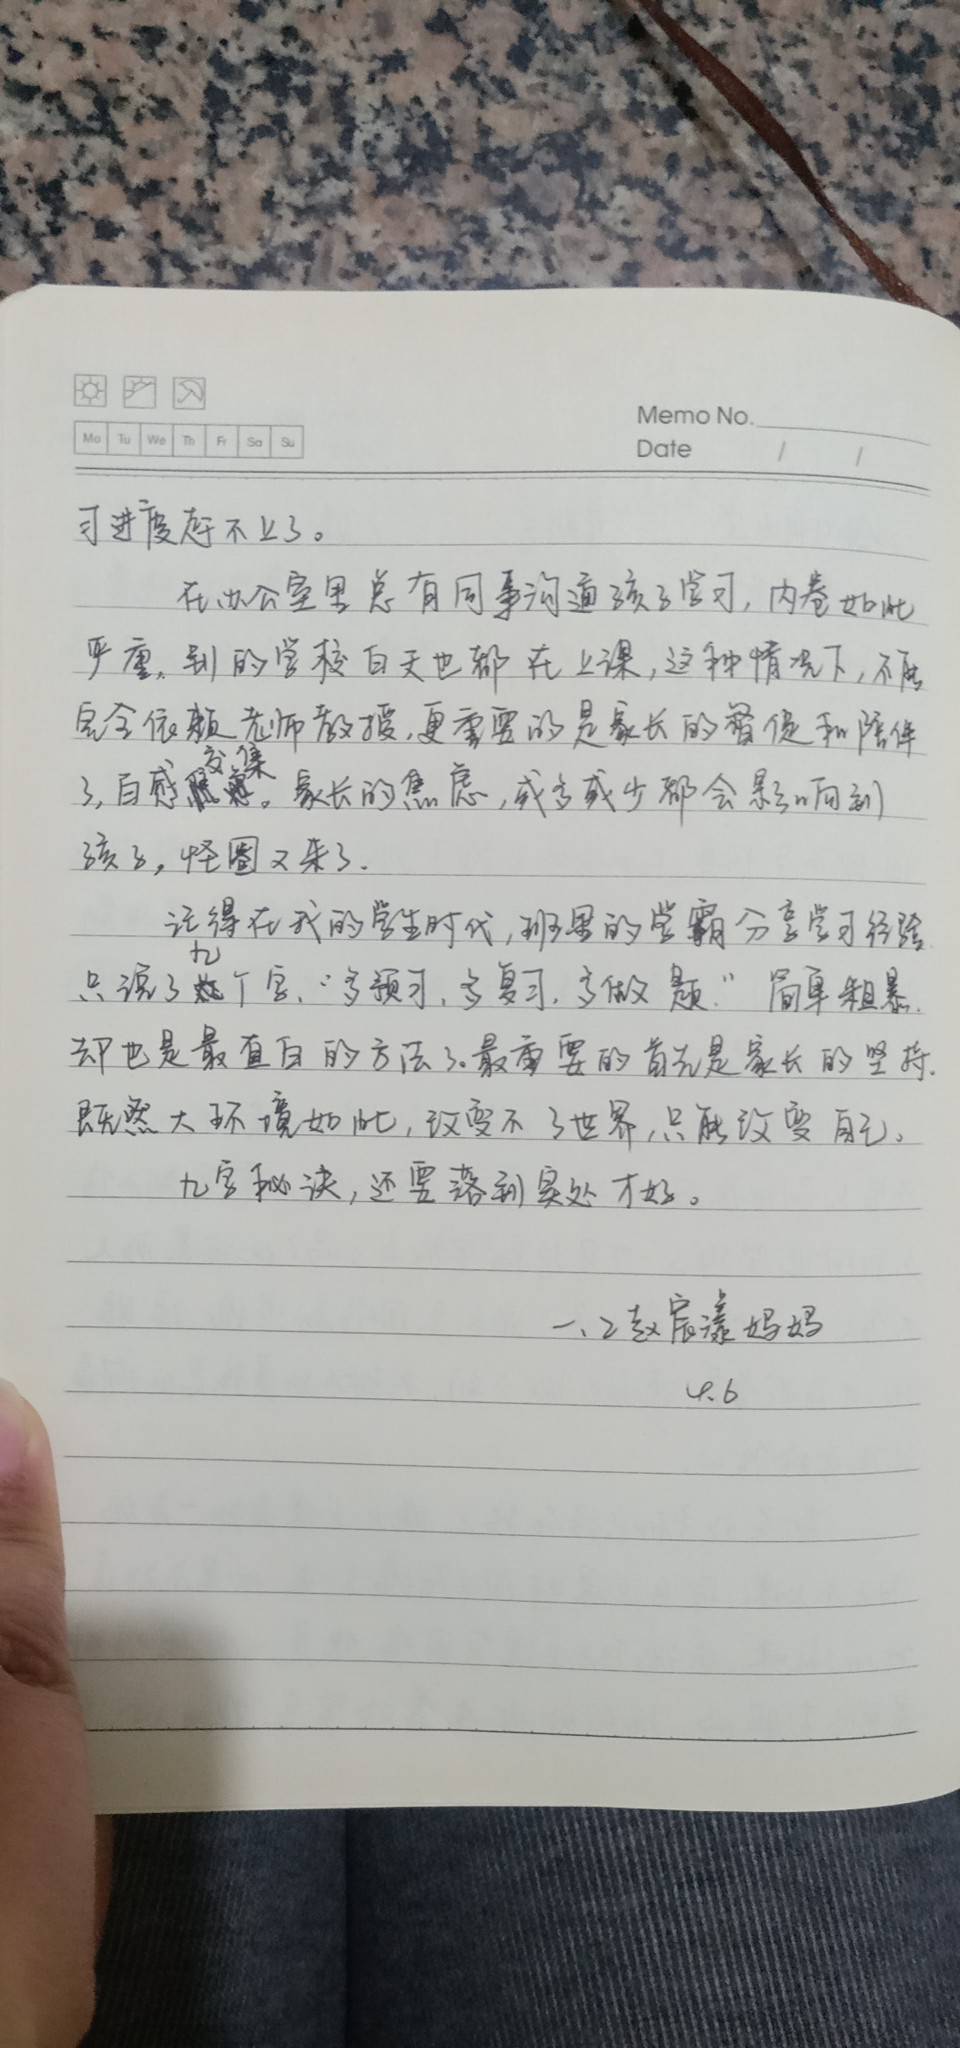 Memo No.
Mo Tu We Th Fr Sa Su
Date / /
习进度存不上了。
在办公室里总有同事沟通孩子学习,内卷如此
严重,别的学校白天也都在上课,这种情况下,不能
完全依赖老师教授,更重要的是家长的督促和陪伴
了,百感交集。家长的焦虑,或多或少都会影响到
孩子,怪圈又来了.
记得在我的学生时代,班里的学霸分享学习经验
只说了九个字,“多预习,多复习,多做题.”简单粗暴.
却也是最直白的方法了。最重要的首先是家长的坚持.
既然大环境如此,改变不了世界,只能改变自己。
九字秘诀,还要落到实处才好。
一.2赵宸漾妈妈
4.6